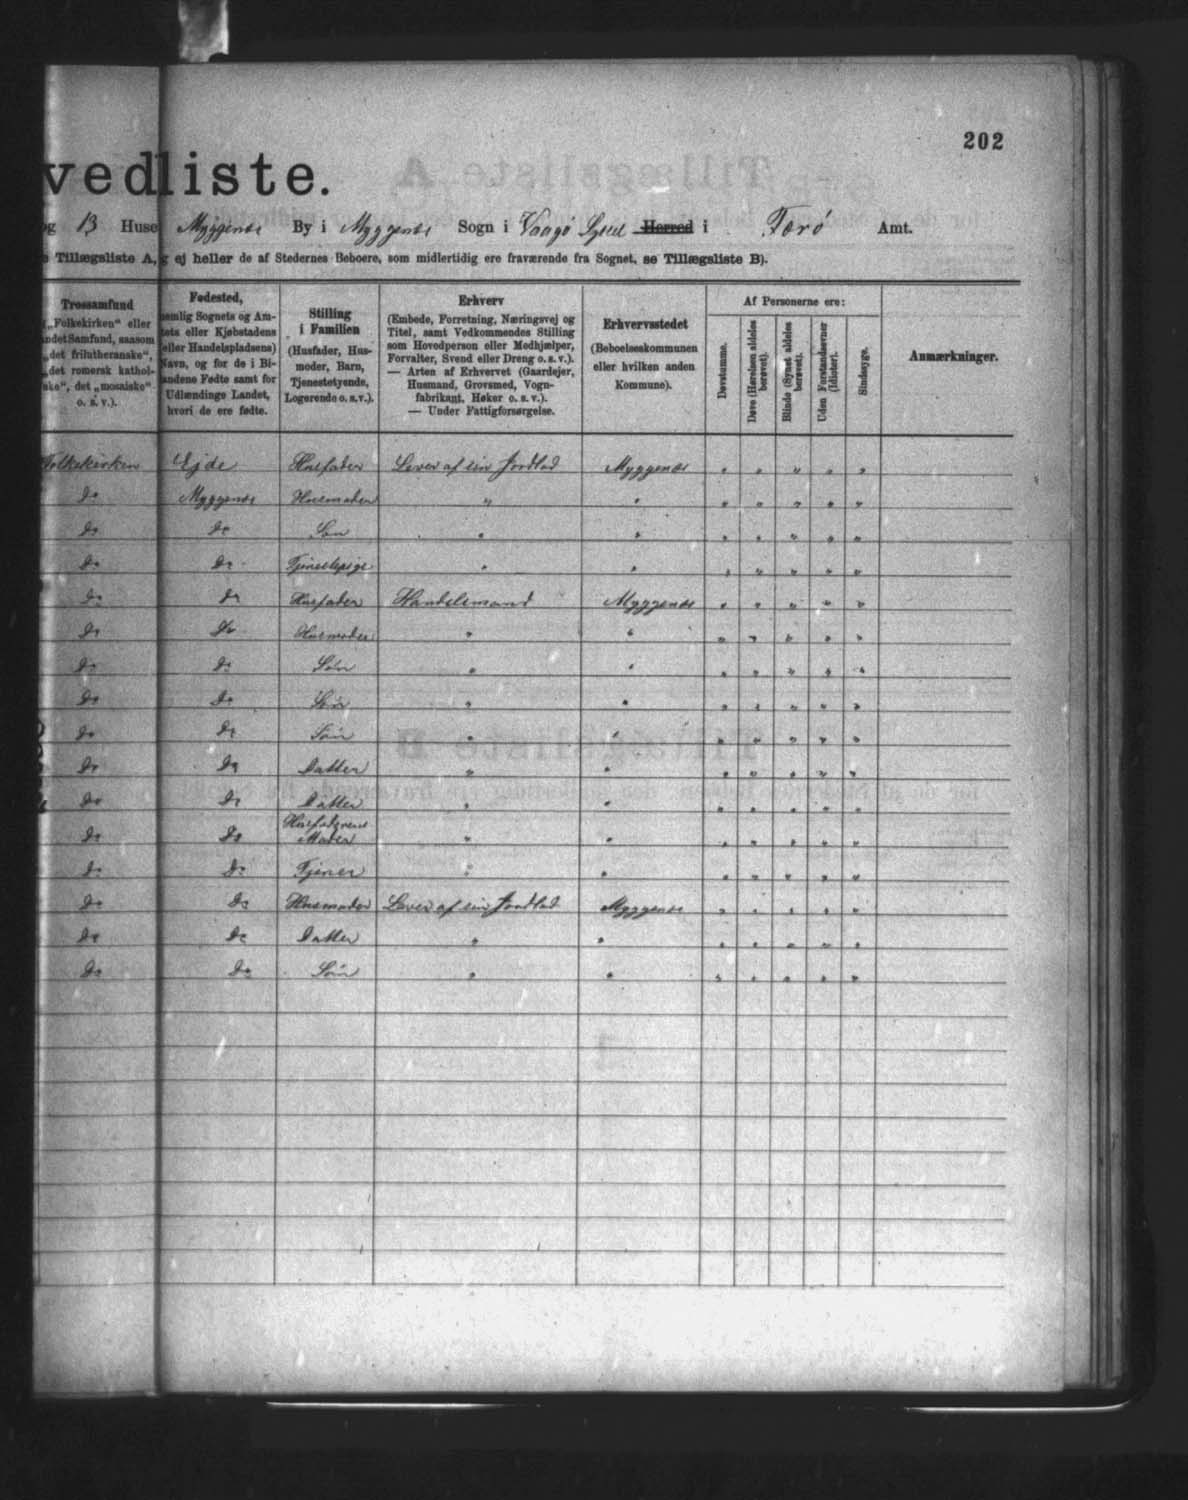 202
vedliste.
og 13 Huse Myggenæs By i Myggenæs Sogn i Vaagø Syssel Herred i Færø Amt.
Tillægsliste A, g ej heller de af Stedernes Beboere, som midlertidig ere fraværende fra Sognet, se Tillægsliste B).
Trossamfund
(„Folkekirken“ eller
andet Samfund, saasom
„det frilutheranske“,
„det romersk kathol-
ske“, det „mosaiske“
o. s. v.).
Fødested,
nemlig Sognets og Am-
tets eller Kjøbstadens
(eller Handelspladsens)
Navn, og for de i Bi-
landene Fødte samt for
Udlændinge Landet,
hvori de ere fødte.
Stilling
i Familien
(Husfader, Hus-
moder, Barn,
Tjenestetyende,
Logerende o. s. v.).
Erhverv
(Embede, Forretning, Næringsvej og
Titel, samt Vedkommendes Stilling
som Hovedperson eller Medhjælper,
Forvalter, Svend eller Dreng o. s. v.).
— Arten af Erhvervet (Gaardejer,
Husmand, Grovsmed, Vogn-
fabrikant, Høker o. s. v.).
— Under Fattigforsørgelse.
Erhvervsstedet
(Beboelseskommunen
eller hvilken anden
Kommune).
Af Personerne ere:
Døvstumme.
Døve (Hørelsen aldeles
berøvet).
Blinde (Synet aldeles
berøvet).
Uden Forstandsevner
(Idioter).
Sindssyge.
Anmærkninger.
Folkekirken Ejde Husfader Lever af sin Jordlod Myggenæs " " " " "
do Myggenæs Husmoder " " " " " " "
do do Søn " " " " " " "
do do Tjenestepige " " " " " " "
do do Husfader Handelsmand Myggenæs " " " " "
do do Husmoder " " " " " " "
do do Søn " " " " " " "
do do Søn " " " " " " "
do do Søn " " " " " " "
do do Datter " " " " " " "
do do Datter " " " " " " "
do do Husfaderens Moder " " " " " " "
do do Tjener " " " " " " "
do do Husmoder Lever af sin Jordlod Myggenæs " " " " "
do do Datter " " " " " " "
do do Søn " " " " " " "